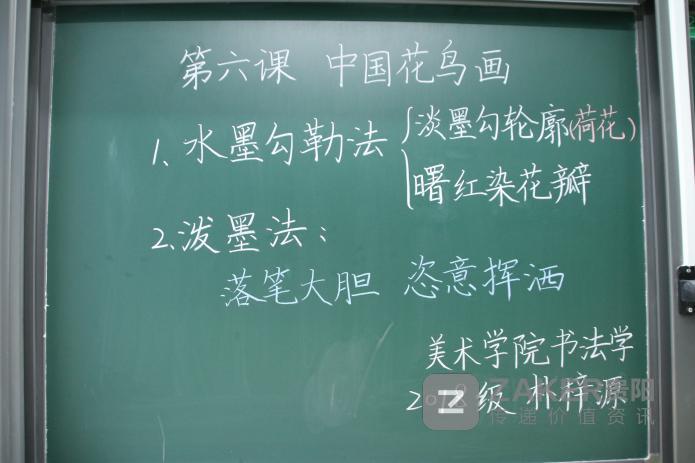 第六课 中国花鸟画
1、水墨勾勒法
淡墨勾轮廓(荷花)
曙红染花瓣
2、泼墨法：
落笔大胆 恣意挥洒
美术学院书法学
2 级 朴梓源
ZAKER景阳
传递价值资讯